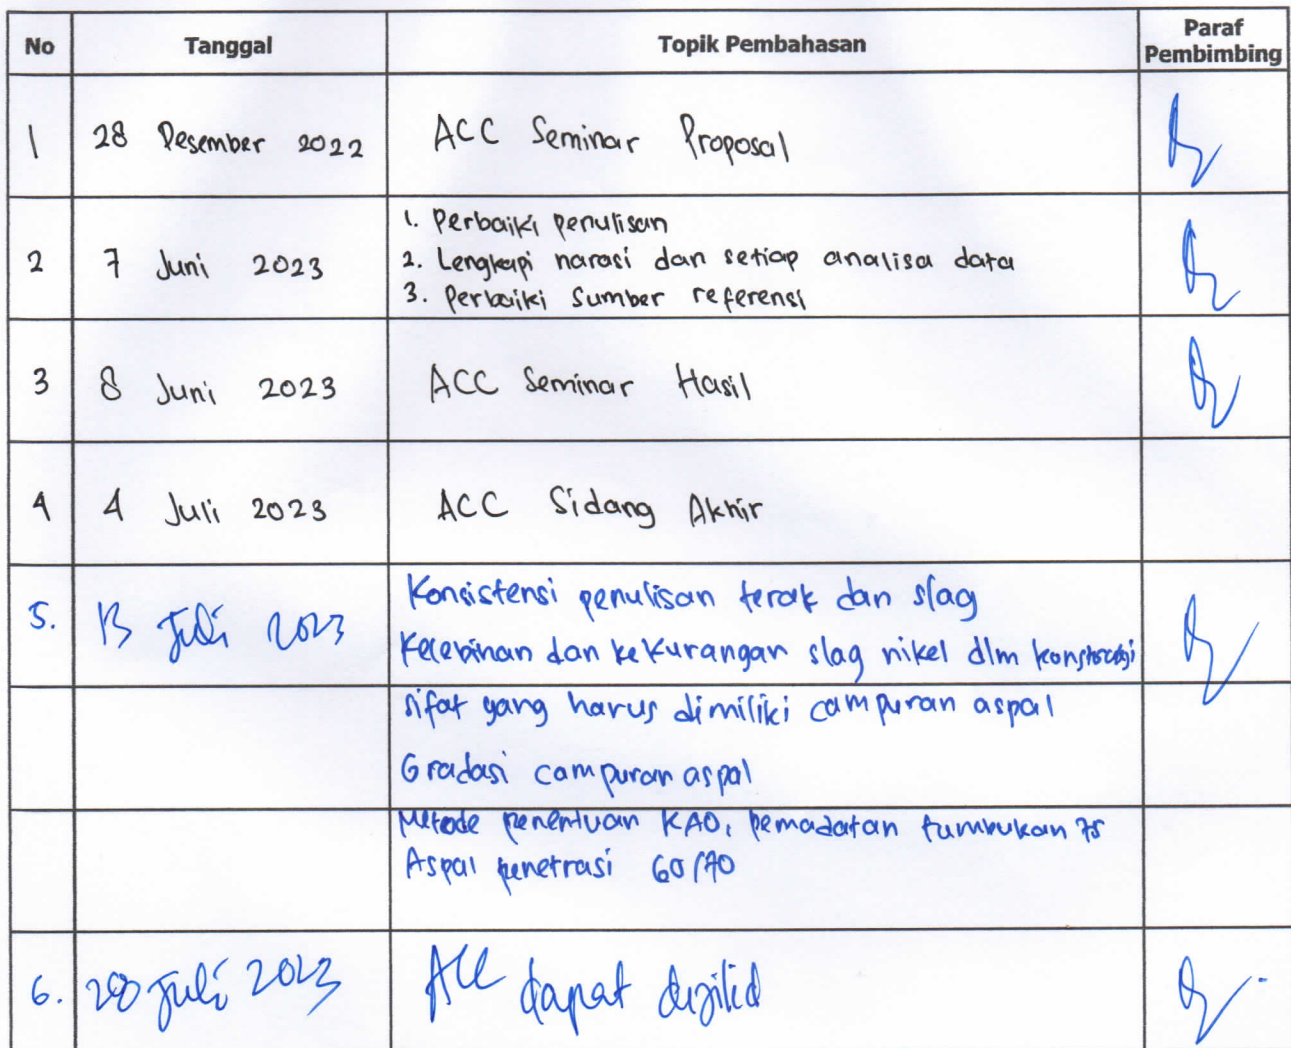 No Tanggal Topik Pembahasan Paraf Pembimbing
1 28 Desember 2022 ACC Seminar Proposal
1. Perbaiki penulisan
2 7 Juni 2023 2. Lengkapi narasi dan setiap analisa data
3. Perbaiki Sumber referensi
3 8 Juni 2023 ACC Seminar Hasil
4 4 Juli 2023 ACC Sidang Akhir
Konsistensi penulisan terak dan slag
5. 13 Juli 2023
Kelebihan dan kekurangan slag nikel dlm konstruksi
sifat yang harus dimiliki campuran aspal
Gradasi campuran aspal
Metode penentuan KAO, pemadatan tumbukan 75
Aspal penetrasi 60/70
6. 28 Juli 2023 ACC dapat dijilid